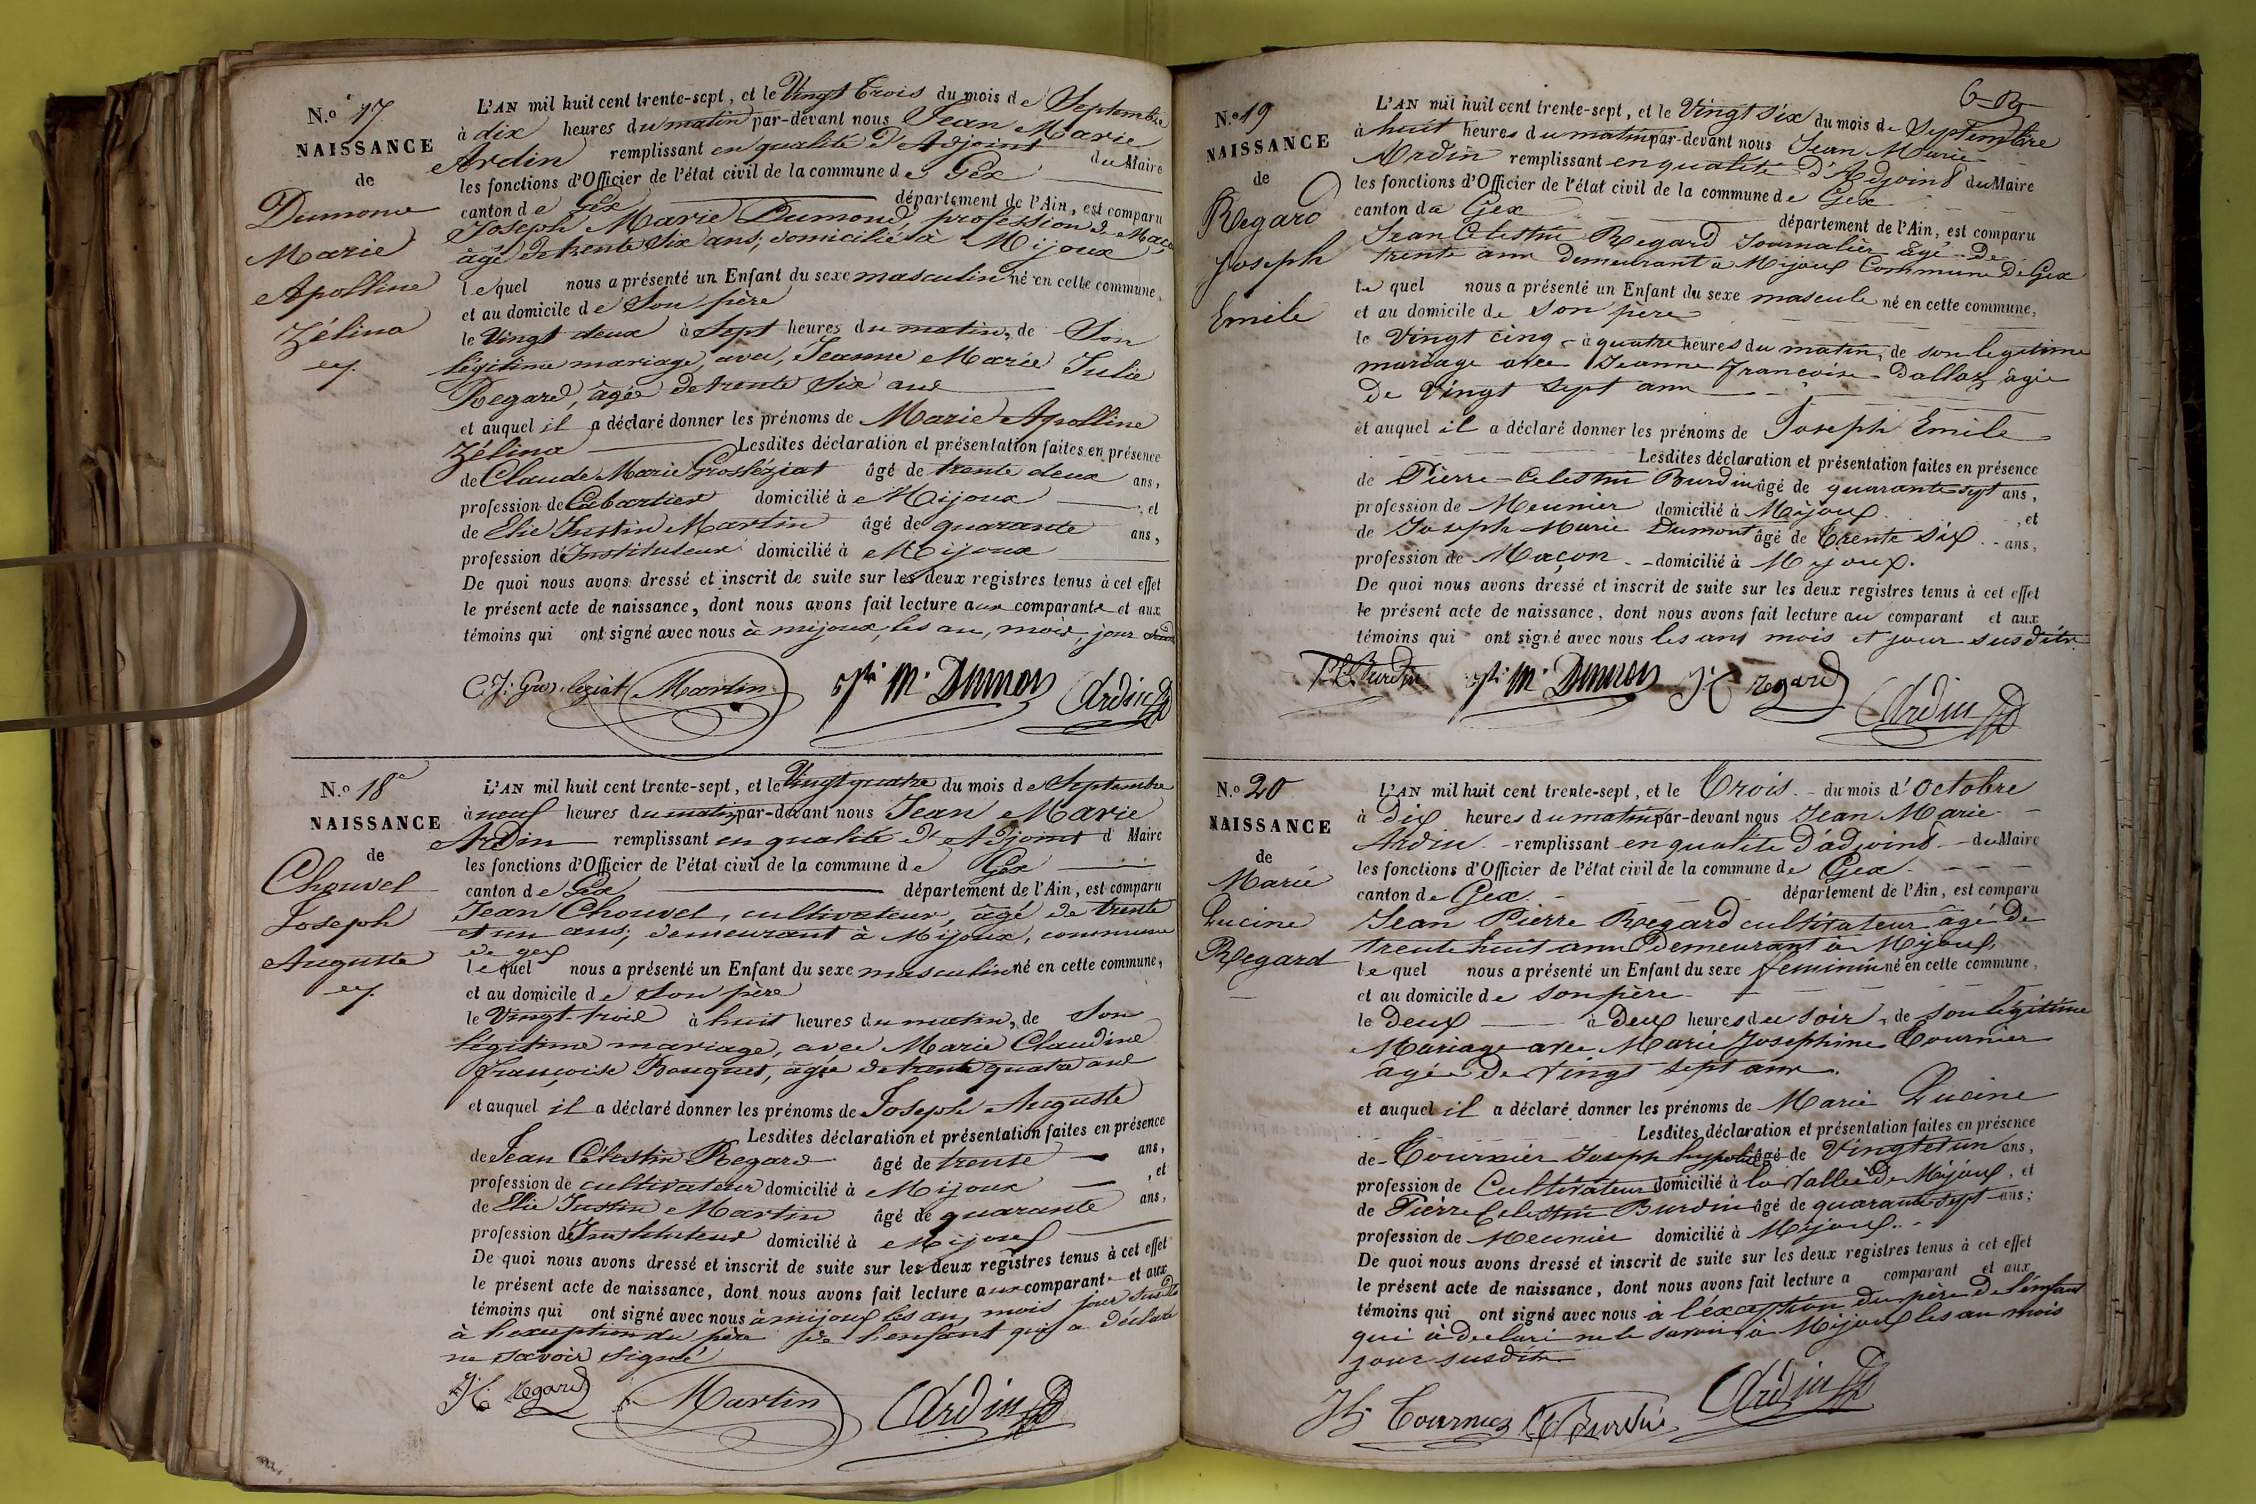 N.o 17
NAISSANCE
de
Dumont
Marie
Apolline
Zélina
L'AN mil huit cent trente-sept, et le Vingt trois du mois de Septembre
à dix heures du matin par-devant nous Jean Marie
Ardin remplissant en qualité d'Adjoint du Maire
les fonctions d'Officier de l'état civil de la commune de Gex
canton de Gex département de l'Ain, est comparu
Joseph Marie Dumond, profession de Maçon
âgé de trente six ans, domicilié à Mijoux
lequel nous a présenté un Enfant du sexe masculin né en cette commune,
et au domicile de Son père
le Vingt deux à Sept heures du matin, de Son
légitime mariage, avec, Jeanne Marie Julie
Regard, âgée de trente six ans
et auquel il a déclaré donner les prénoms de Marie Apolline
Zélina Lesdites déclaration et présentation faites en présence
de Claude Marie Grosléziat âgé de trente deux ans,
profession de Cabartier domicilié à Mijoux , et
de Elie Justin Martin âgé de quarante ans,
profession d'Instituteur domicilié à Mijoux
De quoi nous avons dressé et inscrit de suite sur les deux registres tenus à cet effet
le présent acte de naissance, dont nous avons fait lecture aux comparants et aux
témoins qui ont signé avec nous à mijoux, les an, mois, jour
Martin Jh M. Dumon Ardin
N.o 18
NAISSANCE
de
Chouvet
Joseph
Auguste
L'AN mil huit cent trente-sept, et le Vingt quatre du mois de Septembre
à neuf heures du matin par-devant nous Jean Marie
Ardin remplissant en qualité d'Adjoint d Maire
les fonctions d'Officier de l'état civil de la commune de Gex
canton de Gex département de l'Ain, est comparu
Jean Chouvet, cultivateur, âgé de trente
et un ans, demeurant à Mijoux, commune
de gex
lequel nous a présenté un Enfant du sexe masculin né en cette commune,
et au domicile de Son père
le Vingt-trois à huit heures du matin, de Son
légitime mariage, avec Marie Claudine
françoise Bouquet, âgée de trente quatre ans
et auquel il a déclaré donner les prénoms de Joseph Auguste
Lesdites déclaration et présentation faites en présence
de Jean Célestin Regard âgé de trente ans,
profession de cultivateur domicilié à Mijoux , et
de Elie Justin Martin âgé de quarante ans,
profession d'Instituteur domicilié à Mijoux
De quoi nous avons dressé et inscrit de suite sur les deux registres tenus à cet effet
le présent acte de naissance, dont nous avons fait lecture aux comparants et aux
témoins qui ont signé avec nous à mijoux les an, mois jour susdits
à l'exception du père de l'enfant qui a déclaré
ne savoir signé
J. C. regard Martin Ardin
N.o 19
NAISSANCE
de
Regard
Joseph
Emile
L'AN mil huit cent trente-sept, et le Vingt Six du mois de Septembre
à huit heures du matin par-devant nous Jean Marie
Ardin remplissant en qualité d'Adjoint du Maire
les fonctions d'Officier de l'état civil de la commune de Gex
canton de Gex département de l'Ain, est comparu
Jean Célestin Regard Journalier âgé De
trente ans demeurant à Mijoux Commune De Gex
le quel nous a présenté un Enfant du sexe mascule né en cette commune,
et au domicile de Son père
le Vingt cinq à quatre heures du matin, de son légitime
mariage avec Jeanne françoise Dalloz âgée
De Vingt sept ans
et auquel il a déclaré donner les prénoms de Joseph Emile
Lesdites déclaration et présentation faites en présence
de Pierre Celestin Burdin âgé de quarante sept ans,
profession de Meunier domicilié à Mijoux , et
de Joseph Marie Dumont âgé de trente six ans,
profession de Maçon domicilié à Mijoux.
De quoi nous avons dressé et inscrit de suite sur les deux registres tenus à cet effet
le présent acte de naissance, dont nous avons fait lecture au comparant et aux
témoins qui ont signé avec nous les ans mois et jour susdits.
P. C. Burdin Jh M. Dumon J C regard Ardin
N.o 20
NAISSANCE
de
Marie
Lucine
Regard
L'AN mil huit cent trente-sept, et le Trois du mois d'Octobre
à Dix heures du matin par-devant nous Jean Marie
Ardin remplissant en qualité d'adjoint du Maire
les fonctions d'Officier de l'état civil de la commune de Gex
canton de Gex département de l'Ain, est comparu
Jean Pierre Regard cultivateur âgé de
trente huit ans Demeurant à Mijoux,
le quel nous a présenté un Enfant du sexe feminin né en cette commune,
et au domicile de son père
le Deux à Deux heures du soir, de son légitime
Mariage avec Marie Josephine Tournier
âgée De Vingt sept ans.
et auquel il a déclaré donner les prénoms de Marie Lucine
Lesdites déclaration et présentation faites en présence
de Tournier Joseph hypolite âgé de Vingt et un ans,
profession de Cultivateur domicilié à la Vallée De Mijoux, et
de Pierre Celestin Burdin âgé de quarante sept ans;
profession de Meunier domicilié à Mijoux.
De quoi nous avons dressé et inscrit de suite sur les deux registres tenus à cet effet
le présent acte de naissance, dont nous avons fait lecture a comparant et aux
témoins qui ont signé avec nous à l'éxception du père De l'énfant
qui à declaré ne le savoir, à Mijoux les an mois
jour susdits
Tournier Burdin Ardin